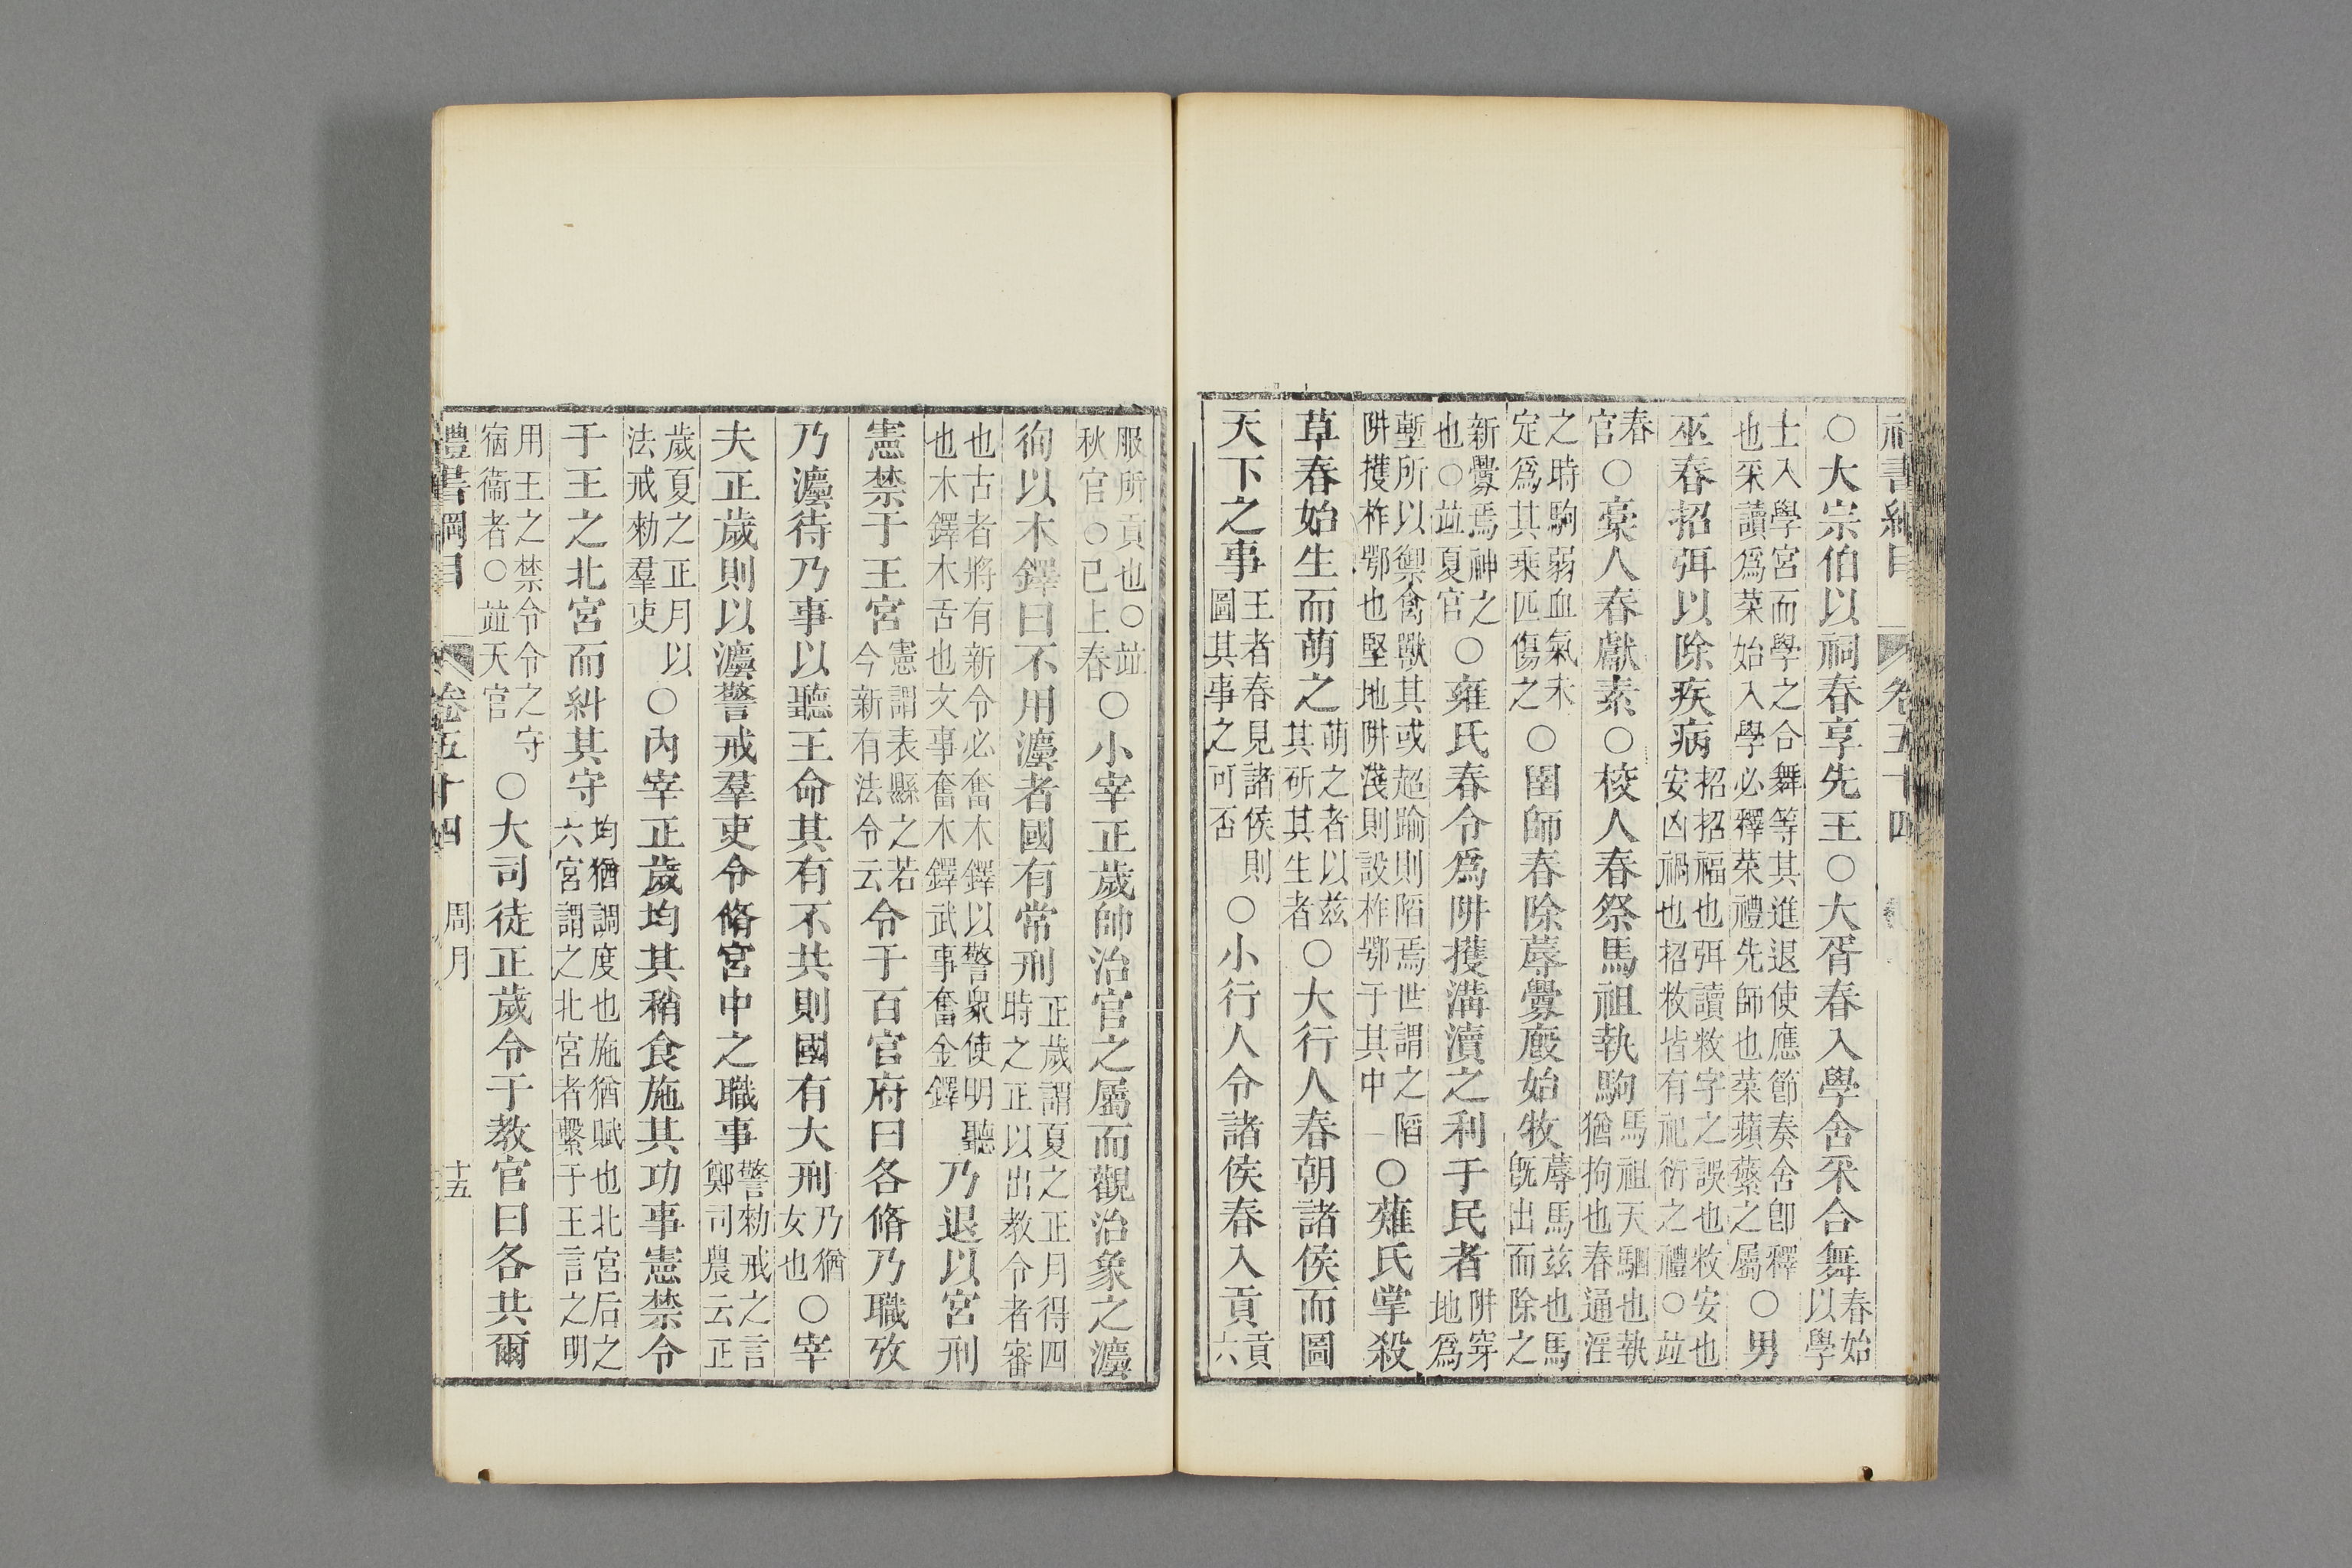 書 卷五十四
○大宗伯以祠春享先王○大胥春入學舍采合舞春始以學
士入學宮而學之合舞等其進退使應節奏舍卽釋也采讀爲菜始入學必釋菜禮先師也菜蘋蘩之屬○男
巫春招弭以除疾病招招福也弭讀敉字之誤也敉安也安凶禍也招敉皆有祀衍之禮○竝
春官○稾人春獻素○校人春祭馬祖執駒馬祖天駟也執猶拘也春通淫
之時駒弱血氣未定爲其乘匹傷之○圉師春除蓐釁廄始牧蓐馬茲也馬旣出而除之
新釁焉神之也○竝夏官○雍氏春令爲阱擭溝瀆之利于民者阱穿地爲
塹所以禦禽獸其或超踰則陷焉世謂之陷阱擭柞鄂也堅地阱淺則設柞鄂于其中○薙氏掌殺
草春始生而萌之萌之者以茲其斫其生者○大行人春朝諸侯而圖
天下之事王者春見諸侯則圖其事之可否○小行人令諸侯春入貢貢六
服所貢也○竝秋官○已上春○小宰正歲帥治官之屬而觀治象之灋
徇以木鐸曰不用灋者國有常刑正歲謂夏之正月得四時之正以出教令者審
也古者將有新令必奮木鐸以警衆使明聽也木鐸木舌也文事奮木鐸武事奮金鐸乃退以宮刑
憲禁于王宮憲謂表縣之若今新有法令云令于百官府曰各脩乃職攷
乃灋待乃事以聽王命其有不共則國有大刑乃猶女也○宰
夫正歲則以灋警戒羣吏令脩宮中之職事警勑戒之言鄭司農云正
歲夏之正月以法戒勑羣吏○內宰正歲均其稍食施其功事憲禁令
于王之北宮而糾其守均猶調度也施猶賦也北宮后之六宮謂之北宮者繫于王言之明
用王之禁令令之守宿衞者○竝天官○大司徒正歲令于教官曰各共爾
禮書綱目 卷五十四 周月 十五